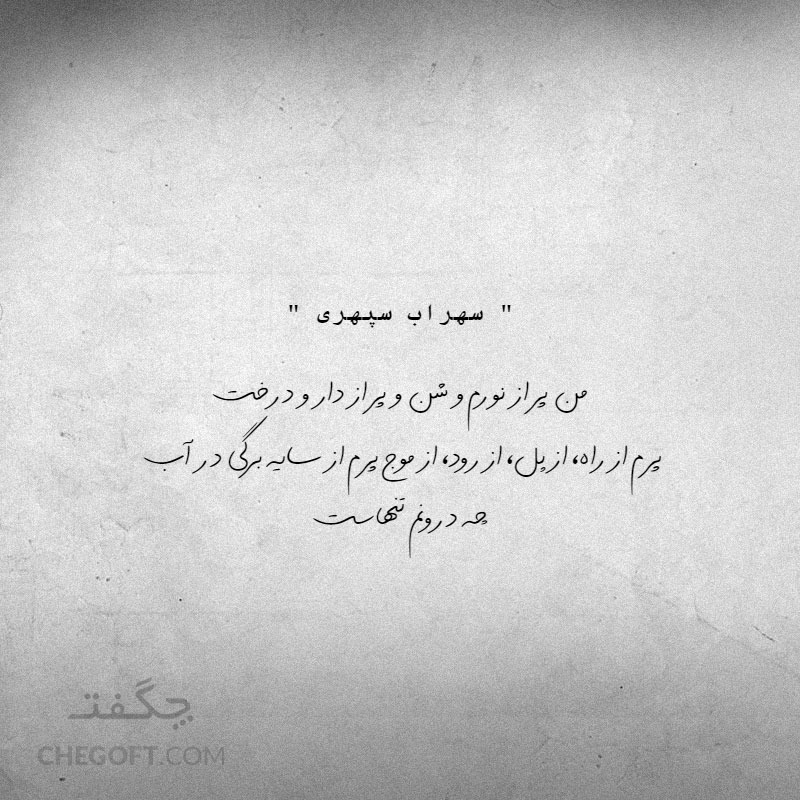 " سهراب سپهری "
من پر از نورم و شن و پر از دار و درخت
پرم از راه، از پل، از رود، از موج پرم از سایه برگی در آب
چه درونم تنهاست
چگفت
CHEGOFT.COM